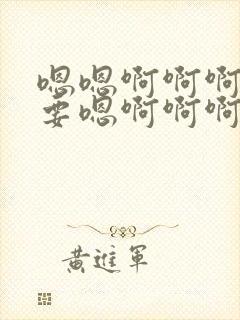 嗯嗯啊啊啊
要嗯啊啊啊
黄進軍